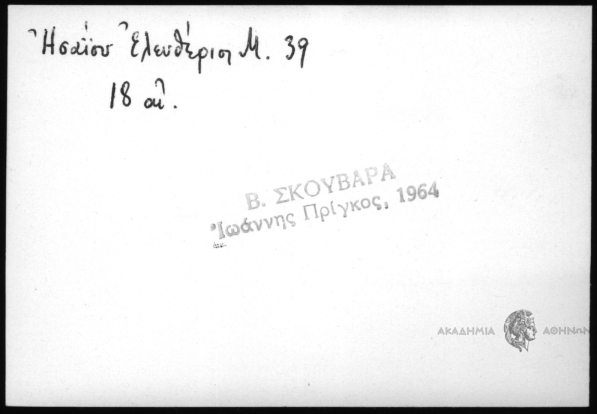 Ἡσαΐου Ἐλευθέριος Μ. 39
18 αἰ.
Β. ΣΚΟΥΒΑΡΑ
Ἰωάννης Πρίγκος, 1964
ΑΚΑΔΗΜΙΑ ΑΘΗΝΩΝ